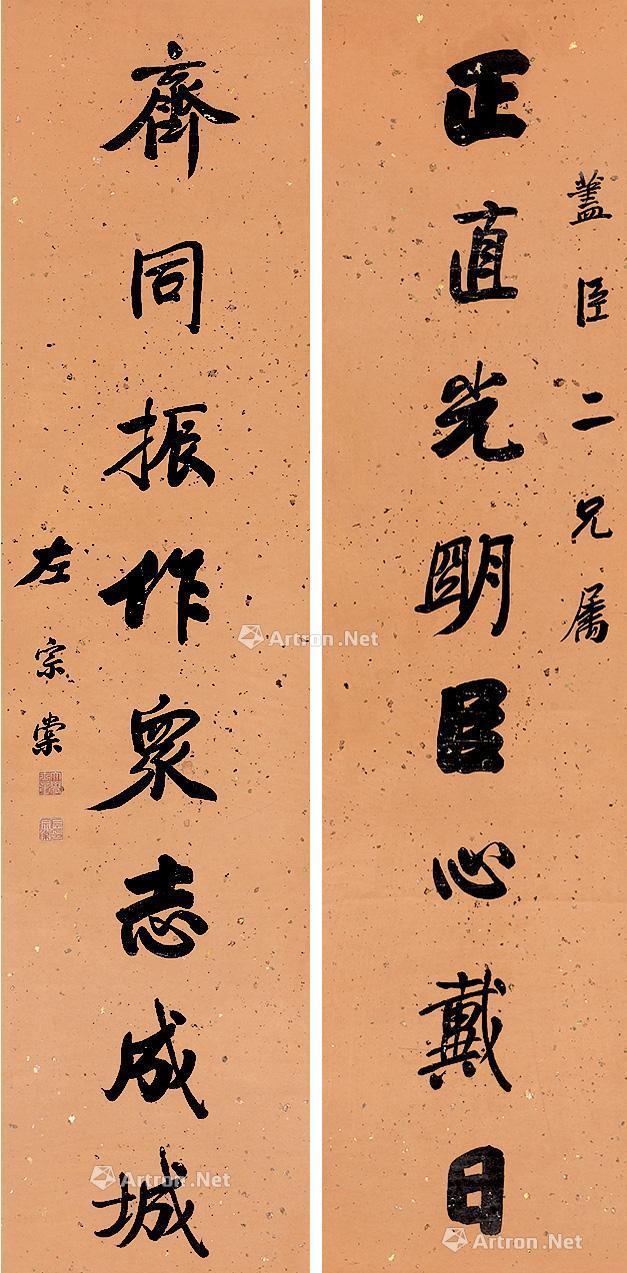 藎臣二兄属
正直光明臣心戴日
齊同振作衆志成城
左宗棠
Artron.Net
Artron.Net
Artron.Net